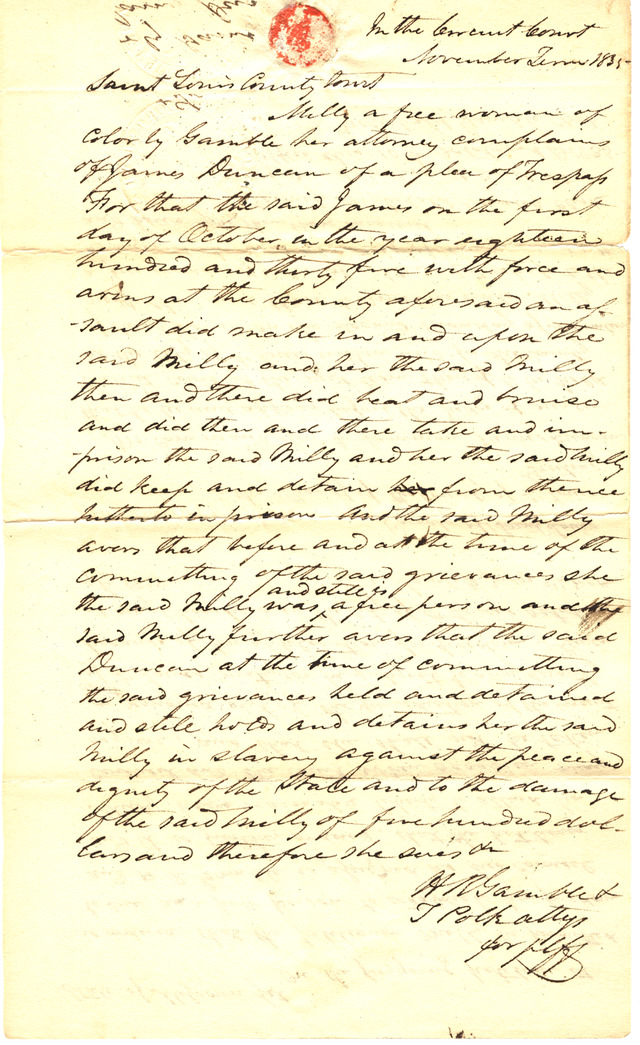 In the Circuit Court
November Term 1835
Saint Louis County Court
Milly a free woman of
Color by Gamble her attorney complains
of James Duncan of a plea of Trespass
For that the said James on the first
day of October in the year eighteen
hundred and thirty five with force and
arms at the County aforesaid an as-
-sault did make in and upon the
said Milly and her the said Milly
then and there did beat and bruise
and did then and there take and im-
-prison the said Milly and her the said Milly
did keep and detain from thence
hitherto in prison And the said Milly
avers that before and at the time of the
committing of the said grievances she
the said Milly was and still is a free person and the
said Milly further avers that the said
Duncan at the time of committing
the said grievances held and detained
and still holds and detains her the said
Milly in slavery against the peace and
dignity of the State and to the damage
of the said Milly of five hundred dol-
lars and therefore she sues &c
H R Gamble &
T Polk attys
for plff